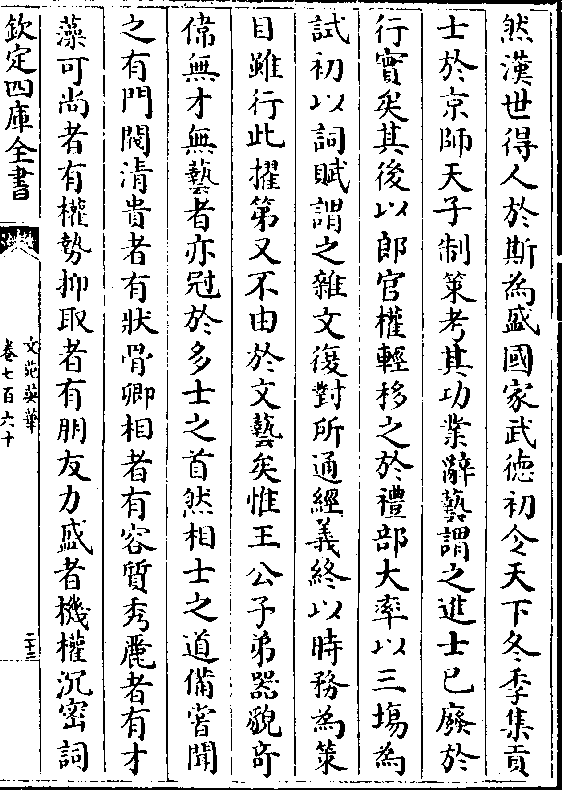 然漢世得人於斯為盛國家武徳初令天下冬季集貢
士於京師天子制策考其功業辭藝謂之進士已廢於
行實矣其後以郎官權輕移之於禮部大率以三塲為
試初以詞賦謂之雜文復對所通經義終以時務為策
目雖行此擢第又不由於文藝矣惟王公子弟器貌竒
偉無才無藝者亦冠於多士之首然相士之道備嘗聞
之有門閥清貴者有狀骨卿相者有容質秀麗者有才
藻可尚者有權勢抑取者有朋友力盛者機權沉密詞
欽定四庫全書
文苑英華
卷七百六十
二十三